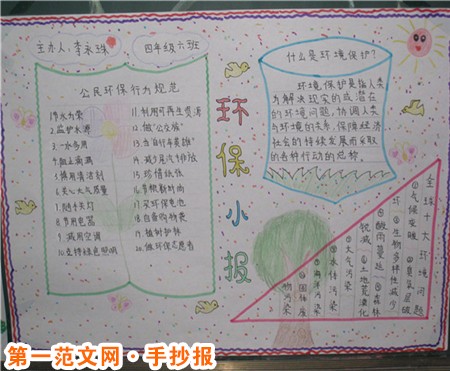 主办人:李永珠
四年级六班
公民环保行为规范
1.节水为荣
2.监护水源
3.一水多用
4.阻止滴漏
5.慎用清洁剂
6.关心大气质量
7.随手关灯
8.节用电器
9.减用空调
10.支持绿色照明
11.利用可再生资源
12.做"公交族"
13.当"自行车英雄"
14.减少尾气排放
15.珍惜纸张
16.
17.买环保电池
18.自备购物袋
19.植树护林
20.做环保志愿者
环保小报
什么是环境保护?
环境保护是指人类
为解决现实的或潜在
的环境问题,协调人类
与环境的关系,保障经济
社会的持续发展而采取
的各种行动的总称。
全球十大环境问题
①气候变暖 ②臭氧层破
坏 ③生物多样性减少
④酸雨蔓延 ⑤森林
锐减 ⑥土地荒漠化
⑦大气污染
⑧水体污染
⑨海洋污染
⑩固体废
物污染
第一范文网·手抄报